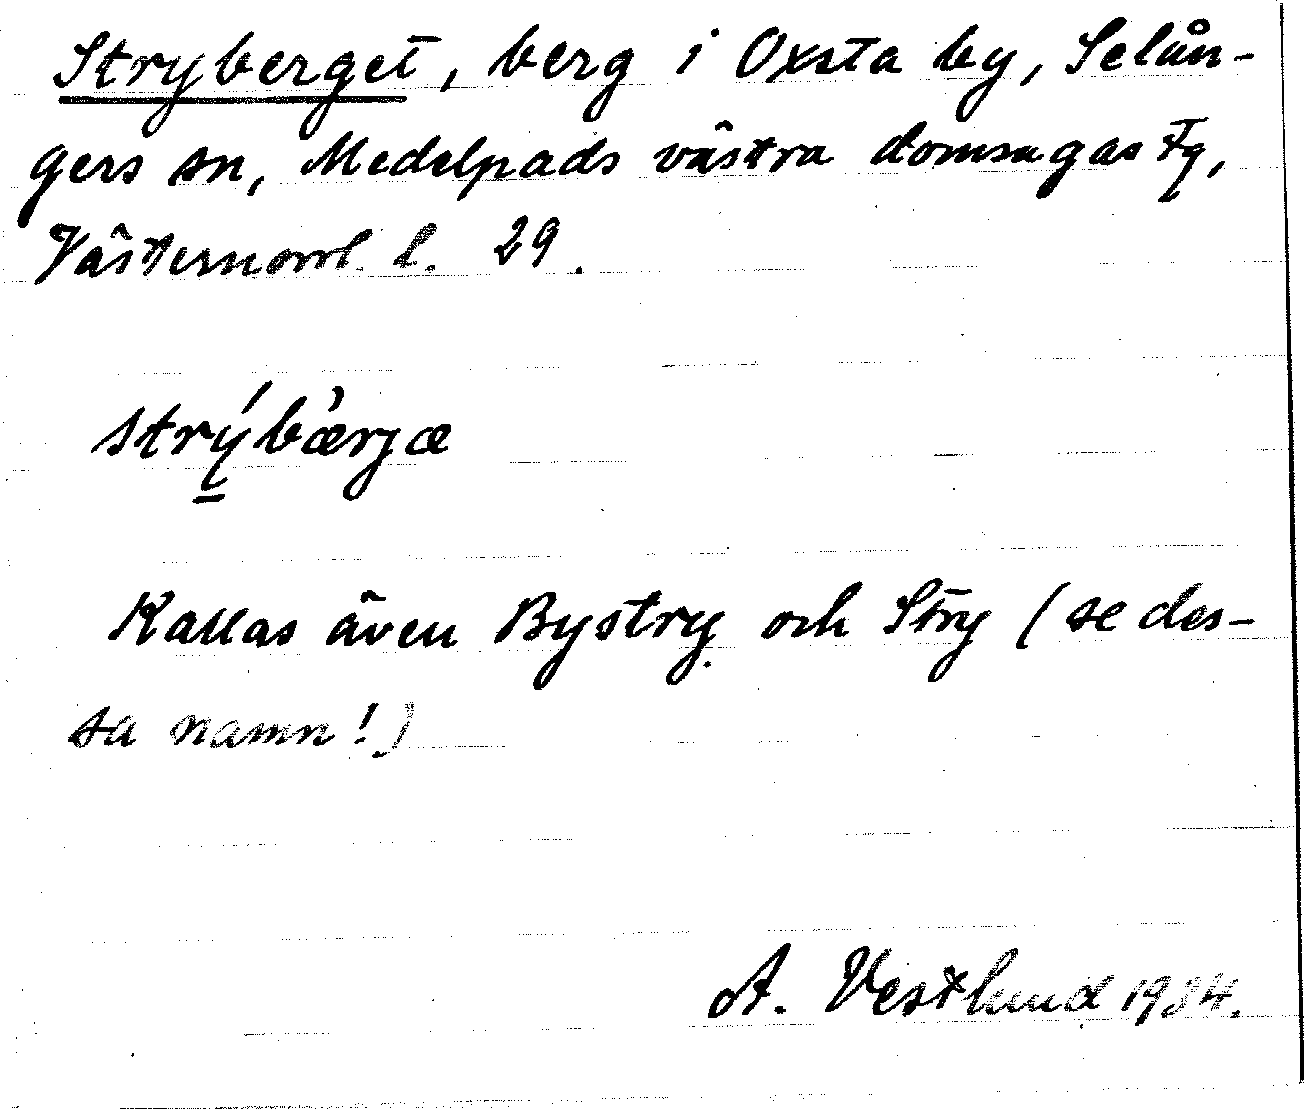 Stryberget, berg i Oxsta by, Selån-
gers sn, Medelpads västra domsagas tg,
Västernorrl. l. 29.
strýbæ̀rjæ
Kallas även Bystry och Stry (se des-
sa namn!)
A. Vestlund 1934.